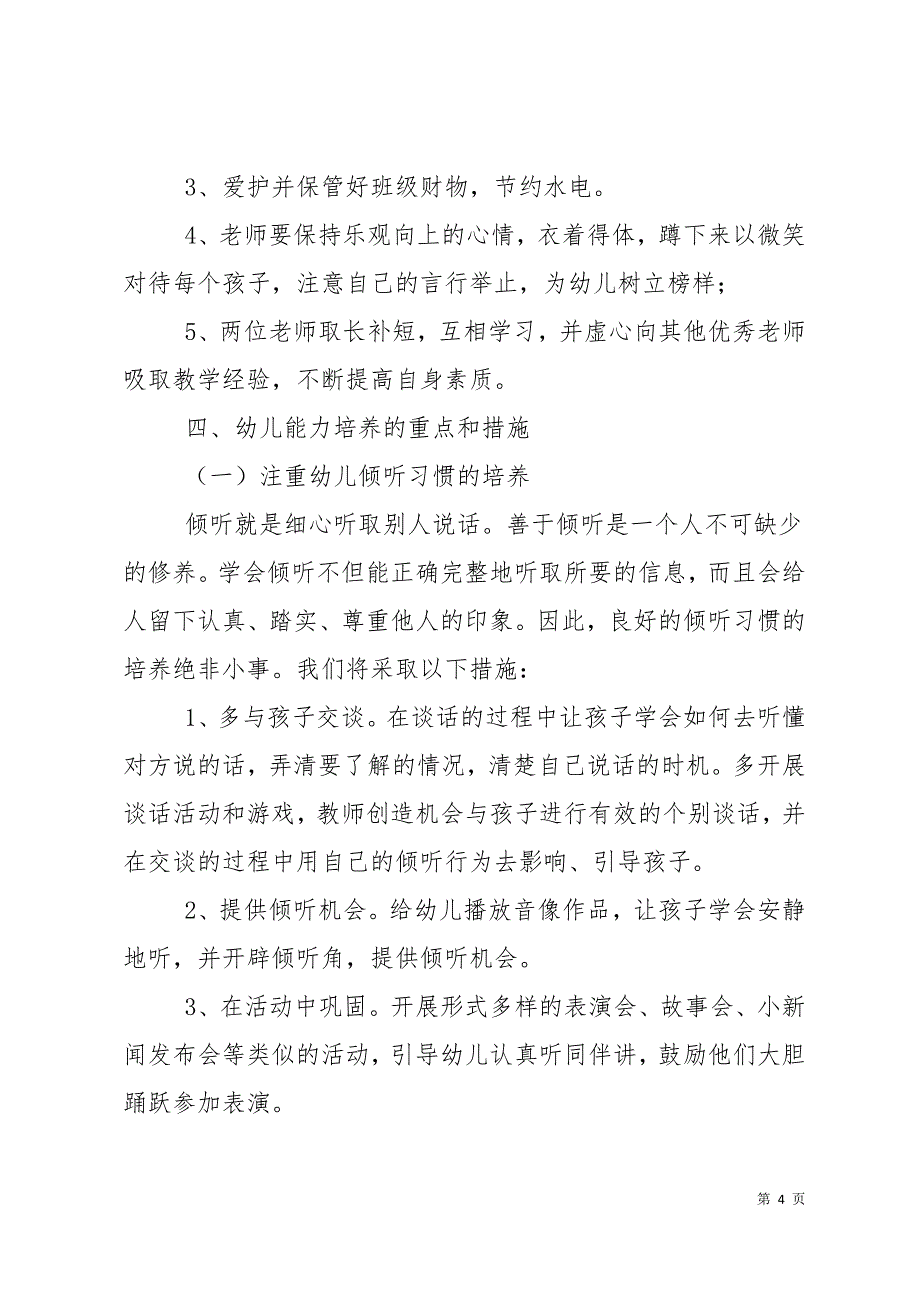 3、爱护并保管好班级财物，节约水电。
4、老师要保持乐观向上的心情，衣着得体，蹲下来以微笑
对待每个孩子，注意自己的言行举止，为幼儿树立榜样；
5、两位老师取长补短，互相学习，并虚心向其他优秀老师
吸取教学经验，不断提高自身素质。
四、幼儿能力培养的重点和措施
（一）注重幼儿倾听习惯的培养
倾听就是细心听取别人说话。善于倾听是一个人不可缺少
的修养。学会倾听不但能正确完整地听取所要的信息，而且会给
人留下认真、踏实、尊重他人的印象。因此，良好的倾听习惯的
培养绝非小事。我们将采取以下措施：
1、多与孩子交谈。在谈话的过程中让孩子学会如何去听懂
对方说的话，弄清要了解的情况，清楚自己说话的时机。多开展
谈话活动和游戏，教师创造机会与孩子进行有效的个别谈话，并
在交谈的过程中用自己的倾听行为去影响、引导孩子。
2、提供倾听机会。给幼儿播放音像作品，让孩子学会安静
地听，并开辟倾听角，提供倾听机会。
3、在活动中巩固。开展形式多样的表演会、故事会、小新
闻发布会等类似的活动，引导幼儿认真听同伴讲，鼓励他们大胆
踊跃参加表演。
第 4 页